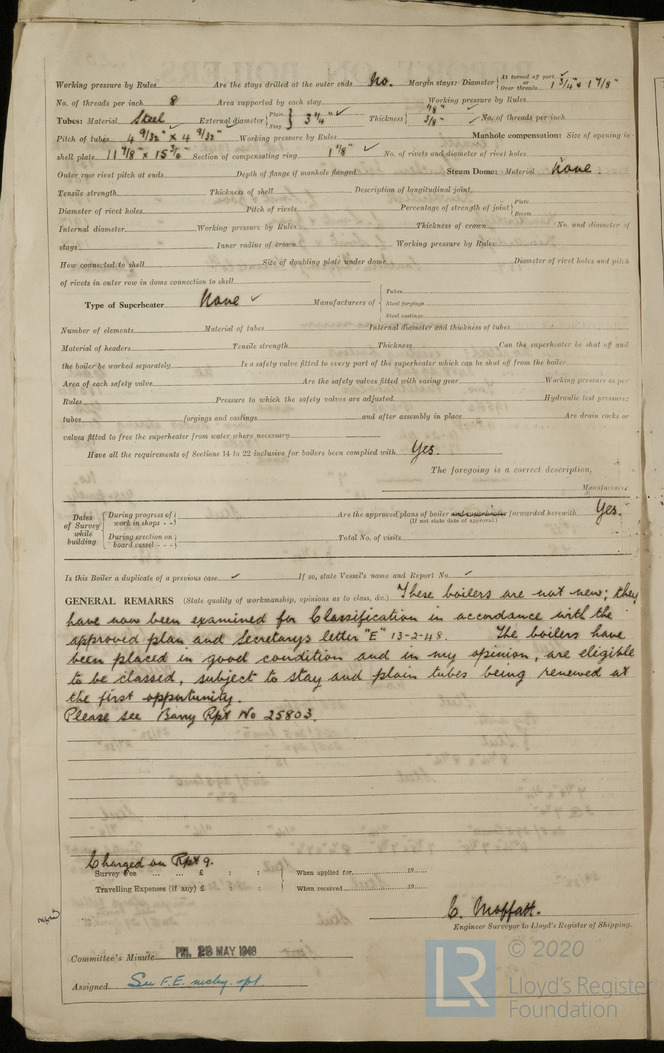 Working pressure by Rules Are the stays drilled at the outer ends No. Margin stays: Diameter { At turned off part. or Over threads 1 3/4" & 1 7/8"
No. of threads per inch 8 Area supported by each stay Working pressure by Rules
Tubes: Material Steel External diameter { Plain Stay } 3 1/4" Thickness { 3/8" No. of threads per inch
Pitch of tubes 4 9/32" x 4 9/32" Working pressure by Rules Manhole compensation: Size of opening in
shell plate 11 7/8" x 15 3/4" Section of compensating ring 1 1/8" No. of rivets and diameter of rivet holes
Outer row rivet pitch at ends Depth of flange if manhole flanged Steam Dome: Material None.
Tensile strength Thickness of shell Description of longitudinal joint
Diameter of rivet holes Pitch of rivets Percentage of strength of joint { Plate Rivets
Internal diameter Working pressure by Rules Thickness of crown No. and diameter of
stays Inner radius of crown Working pressure by Rules
How connected to shell Size of doubling plate under dome Diameter of rivet holes and pitch
of rivets in outer row in dome connection to shell
Type of Superheater None Manufacturers of { Tubes Steel forgings Steel castings
Number of elements Material of tubes Internal diameter and thickness of tubes
Material of headers Tensile strength Thickness Can the superheater be shut off and
the boiler be worked separately Is a safety valve fitted to every part of the superheater which can be shut off from the boiler
Area of each safety valve Are the safety valves fitted with easing gear Working pressure as per
Rules Pressure to which the safety valves are adjusted Hydraulic test pressure:
tubes forgings and castings and after assembly in place Are drain cocks or
valves fitted to free the superheater from water where necessary
Have all the requirements of Sections 14 to 22 inclusive for boilers been complied with Yes.
The foregoing is a correct description,
Manufacturer.
Dates of Survey while building { During progress of work in shops - - { During erection on board vessel - - -
Are the approved plans of boiler and superheater forwarded herewith Yes.
(If not state date of approval.)
Total No. of visits
Is this Boiler a duplicate of a previous case If so, state Vessel's name and Report No.
GENERAL REMARKS (State quality of workmanship, opinions as to class, &c.) These boilers are not new; they
have now been examined for Classification in accordance with the
approved plan and Secretarys letter "E" 13-2-48. The boilers have
been placed in good condition and in my opinion, are eligible
to be classed, subject to stay and plain tubes being renewed at
the first opportunity.
Please see Barry Rpt No 25803.
Charged on Rpt 9.
Survey Fee ... ... £ : : When applied for 19
Travelling Expenses (if any) £ : : When received 19
C. Moffatt.
Engineer Surveyor to Lloyd's Register of Shipping.
Committee's Minute FRI. 28 MAY 1948
Assigned See F.E. mchy. rpt.
LR © 2020
Lloyd's Register
Foundation